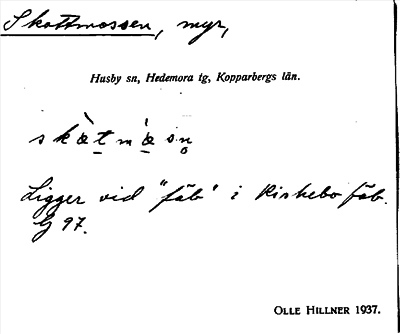 Skattmossen, myr,
Husby sn, Hedemora tg, Kopparbergs län.
Ligger vid "fäb" i Kirkebo fäb.
G 97.
OLLE HILLNER 1937.